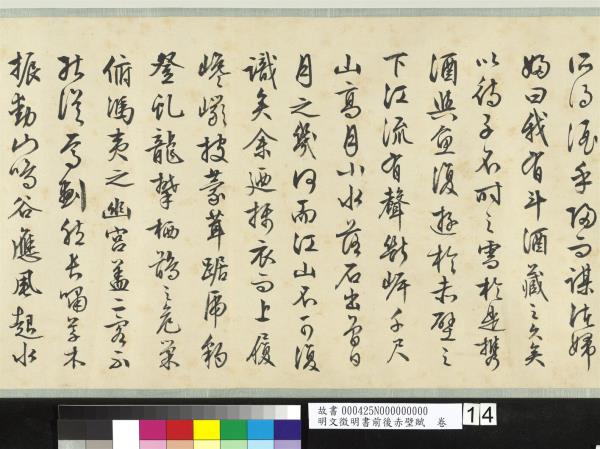 所得酒乎歸而謀諸婦
婦曰我有斗酒藏之久矣
以待子不時之需於是攜
酒與魚復遊於赤壁之
下江流有聲斷岸千尺
山高月小水落石出曾日
月之幾何而江山不可復
識矣余迺攝衣而上履
巉巖披蒙茸踞虎豹
登虬龍攀栖鶻之危巢
俯馮夷之幽宮蓋二客不
能從焉劃然長嘯草木
振動山鳴谷應風起水
故書 000425N000000000
明文徵明書前後赤壁賦 卷
14